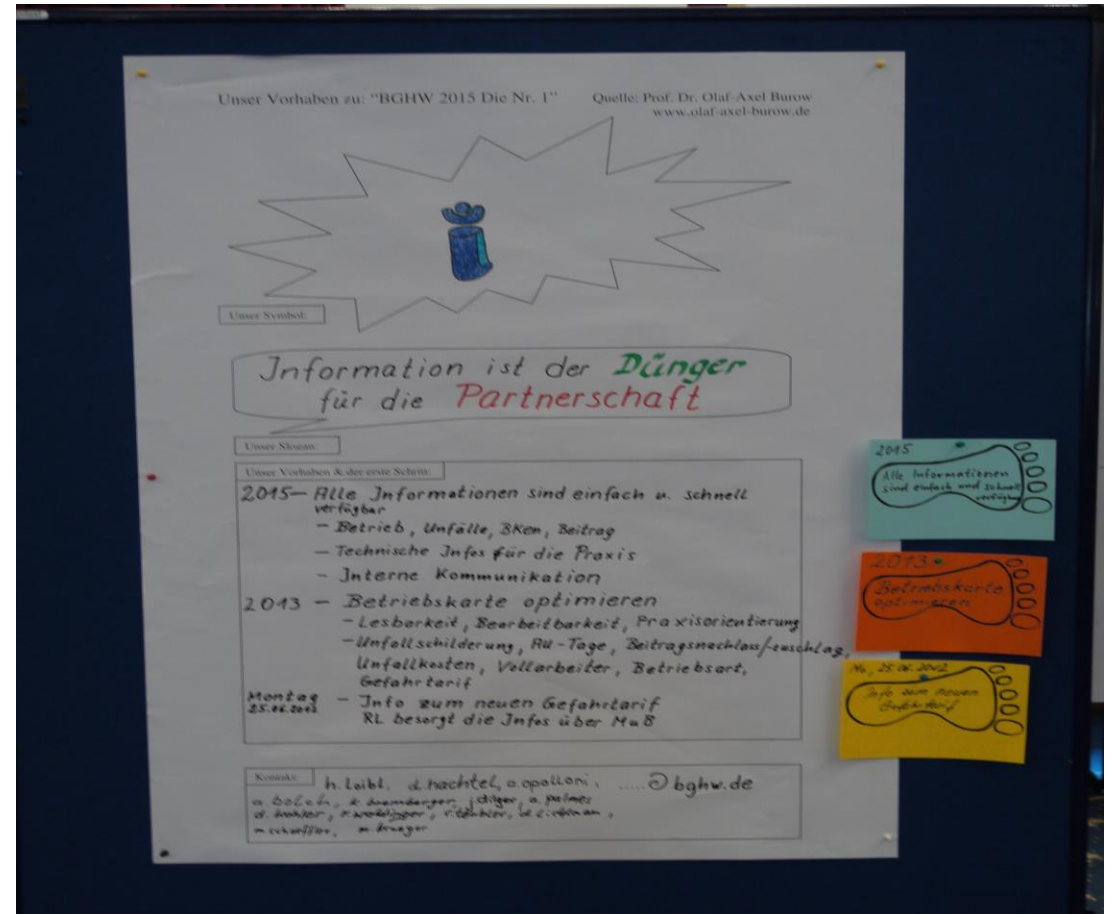 Unser Vorhaben zu: "BGHW 2015 Die Nr. 1"
Quelle: Prof. Dr. Olaf-Axel Burow
www.olaf-axel-burow.de
Unser Symbol:
Information ist der Dünger
für die Partnerschaft
Unser Slogan:
Unser Vorhaben & der erste Schritt:
2015 – Alle Informationen sind einfach u. schnell
verfügbar
– Betrieb, Unfälle, BKen, Beitrag
– Technische Infos für die Praxis
– Interne Kommunikation
2013 – Betriebskarte optimieren
– Lesbarkeit, Bearbeitbarkeit, Praxisorientierung
– Unfallschilderung, AU-Tage, Beitragsnachlass/-zuschlag,
Unfallkosten, Vollarbeiter, Betriebsart,
Gefahrtarif
Montag – Info zum neuen Gefahrtarif
25.06.2012 RL besorgt die Infos über MuB
Kontakt: h.loibl, d.hachtel, a.apolloni, ..... @bghw.de
a. palmes
m. krueger
2015
Alle Informationen
sind einfach und schnell
verfügbar
2013
Betriebskarte
optimieren
Mo, 25.06.2012
Info zum neuen
Gefahrtarif